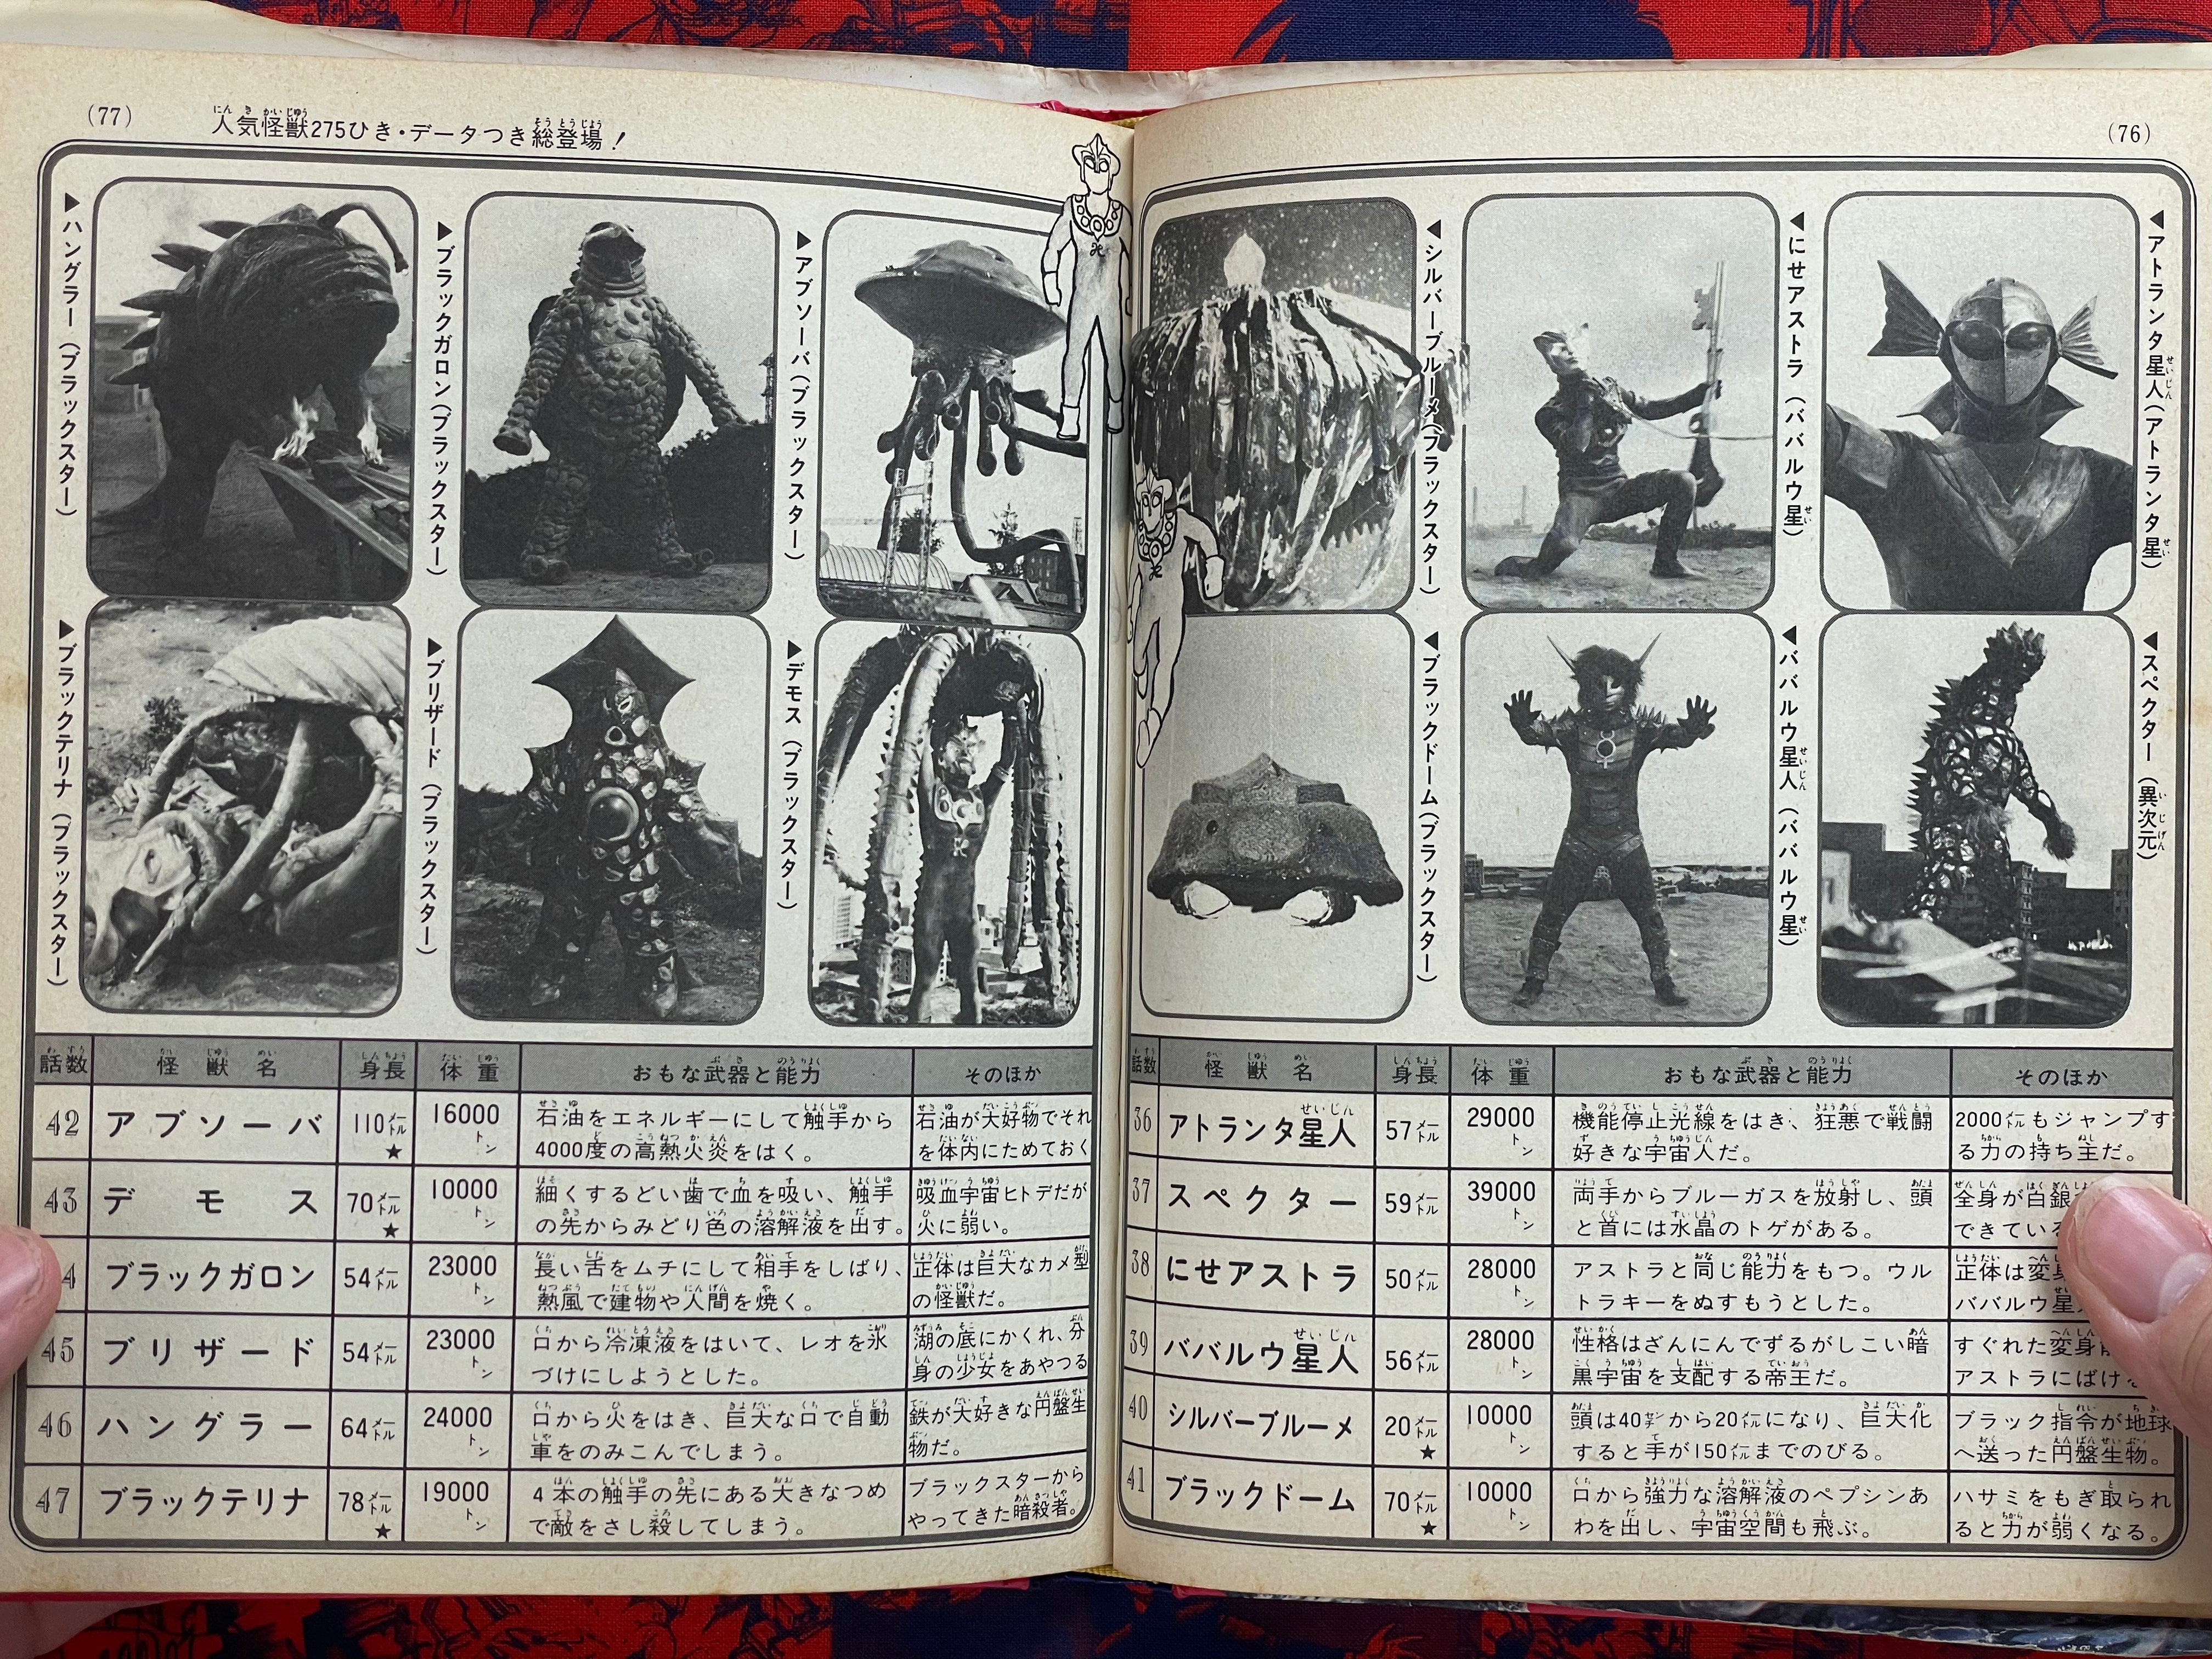 (76)
アトランタ星人(アトランタ星)
スペクター(異次元)
にせアストラ(ババルウ星)
ババルウ星人(ババルウ星)
シルバーブルーメ(ブラックスター)
ブラックドーム(ブラックスター)
話数 怪獣名 身長 体重 おもな武器と能力 そのほか
36 アトランタ星人 57メートル 29000トン 機能停止光線をはき、狂悪で戦闘
好きな宇宙人だ。
2000メートルもジャンプす
る力の持ち主だ。
37 スペクター 59メートル 39000トン 両手からブルーガスを放射し、頭
と首には水晶のトゲがある。
全身が白銀
できている
38 にせアストラ 50メートル 28000トン アストラと同じ能力をもつ。ウル
トラキーをぬすもうとした。
正体は変身
ババルウ星
39 ババルウ星人 56メートル 28000トン 性格はざんにんでずるがしこい暗
黒宇宙を支配する帝王だ。
すぐれた変身
アストラにばけ
40 シルバーブルーメ 20メートル★ 10000トン 頭は40センチから20メートルになり、巨大化
すると手が150メートルまでのびる。
ブラック指令が地球
へ送った円盤生物。
41 ブラックドーム 70メートル★ 10000トン 口から強力な溶解液のペプシンあ
わを出し、宇宙空間も飛ぶ。
ハサミをもぎ取られ
ると力が弱くなる。
(77)
人気怪獣275ひき・データつき総登場!
アブソーバ(ブラックスター)
デモス(ブラックスター)
ブラックガロン(ブラックスター)
ブリザード(ブラックスター)
ハングラー(ブラックスター)
ブラックテリナ(ブラックスター)
話数 怪獣名 身長 体重 おもな武器と能力 そのほか
42 アブソーバ 110メートル★ 16000トン 石油をエネルギーにして触手から
4000度の高熱火炎をはく。
石油が大好物でそれ
を体内にためておく
43 デモス 70メートル★ 10000トン 細くするどい歯で血を吸い、触手
の先からみどり色の溶解液を出す。
吸血宇宙ヒトデだが
火に弱い。
4 ブラックガロン 54メートル 23000トン 長い舌をムチにして相手をしばり、
熱風で建物や人間を焼く。
正体は巨大なカメ型
の怪獣だ。
45 ブリザード 54メートル 23000トン 口から冷凍液をはいて、レオを氷
づけにしようとした。
湖の底にかくれ、分
身の少女をあやつる
46 ハングラー 64メートル 24000トン 口から火をはき、巨大な口で自動
車をのみこんでしまう。
鉄が大好きな円盤生
物だ。
47 ブラックテリナ 78メートル★ 19000トン 4本の触手の先にある大きなつめ
で敵をさし殺してしまう。
ブラックスターから
やってきた暗殺者。